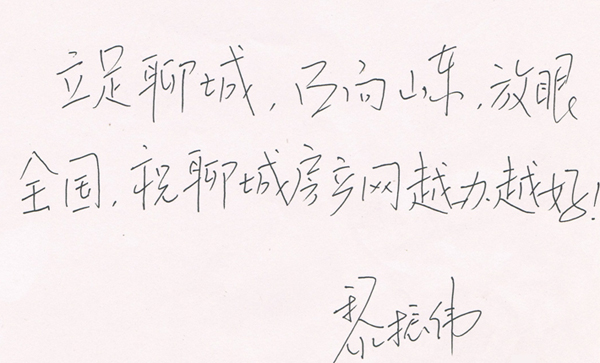 立足聊城，面向山东，放眼
全国，祝聊城房产网越办越好！
振伟